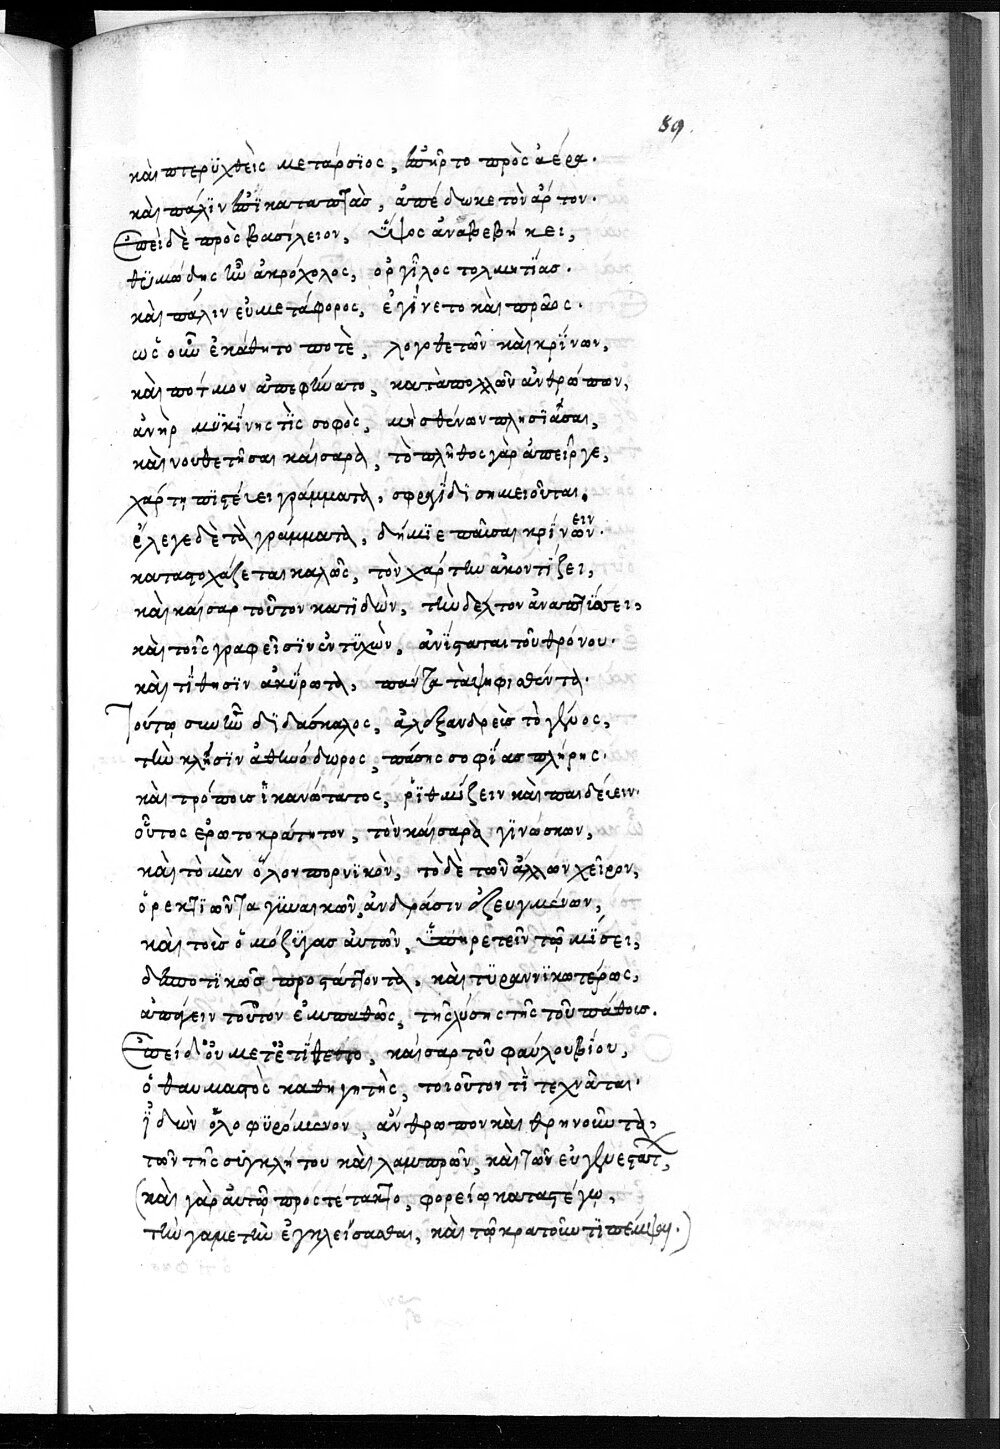 89.
καὶ πτερϋχθεὶς μετάρσϊος, ἐπῆρτο πρὸς ἀέρα.
καὶ πάλϊν ἐπϊκαταπτὰς, ἀπέδωκε τὸν ἄρτον.
Ἐπεὶ δὲ πρὸς βασίλειον, ὕψος ἀναβεβήκει,
θϋμώδης ἦν ἀκρόχολος, ὀργΐλος τολμητΐας.
καὶ πάλιν εὐμετάφορος, ἐγΐνετο καὶ πρᾶος.
ὡς οὖν ἐκάθητο ποτὲ, λογοθετῶν καὶ κρΐνων,
καὶ πότμον ἀπεφήνατο, κατὰ πολλῶν ἀνθρώπων,
ἀνὴρ μϋκΐνης τὶς σοφὸς, μὴ σθένων πλησϊάσαι,
καὶ νουθετῆσαι καίσαρα, τὸ πλῆθος γὰρ ἀπεῖργε,
χάρτῃ πϊστεύει γράμματα, σφραγΐδι σημειοῦται.
ἔλεγε δὲ τὰ γράμματα, δήμϊε παῦσαι κρΐνων ειν.
καταστοχάζεται καλῶς, τὸν χάρτην ἀκοντΐζει,
καὶ καίσαρ τοῦτον κατϊδὼν, τὴν δέλτον ἀναπτΰσσει,
καὶ τοῖς γραφεῖσϊν ἐντϋχὼν, ἀνΐσταται τοῦ θρόνου.
καὶ τΐθησϊν ἀκΰρωτα, πάντα τὰ ψηφισθέντα.
Τούτῳ συνῆν δϊδάσκαλος, ἀλεξανδρεὺς τὸ γένος,
τὴν κλῆσϊν ἀθηνόδωρος, πάσης σοφΐας πλήρης.
καὶ τρόποις ἱκανώτατος, ῥϋθμΐζειν καὶ παιδεύειν.
οὗτος ἐρωτοκράτητον, τὸν καίσαρα γϊνώσκων,
καὶ τὸ μὲν ὅλον πορνϊκὸν, τὸ δὲ τῶν ἄλλων χεῖρον,
ὀρεκτϊῶντα γϋναικῶν, ἀνδράσιν ἐζευγμένων,
καὶ τοὺς ὁμόζϋγας αὐτῶν, ὑπηρετεῖν τῷ μΰσει,
δεσποτϊκῶς προστάττοντα, καὶ τϋραννϊκωτέρως,
ἀπάγειν τοῦτον ἐμπαθῶς, τῆς λύσσης τῆς τοῦ πάθους.
Ἐπεὶ δ' οὐ μετετΐθετο, καίσαρ τοῦ φαύλου βίου,
ὁ θαυμαστὸς καθηγητὴς, τοιοῦτον τϊ τεχνᾶται.
ἰδὼν ὀλοφϋρόμενον, ἄνθρωπον καὶ θρηνοῦντα,
τῶν τῆς συγκλήτου καὶ λαμπρῶν, καὶ τῶν εὐγενεστάτων,
(καὶ γὰρ αὐτῷ προστέτακτο, φορείῳ καταστέγῳ,
τὴν γαμετὴν ἐγκλείσασθαι, καὶ τῷ κρατοῦντϊ πέμψαι.)